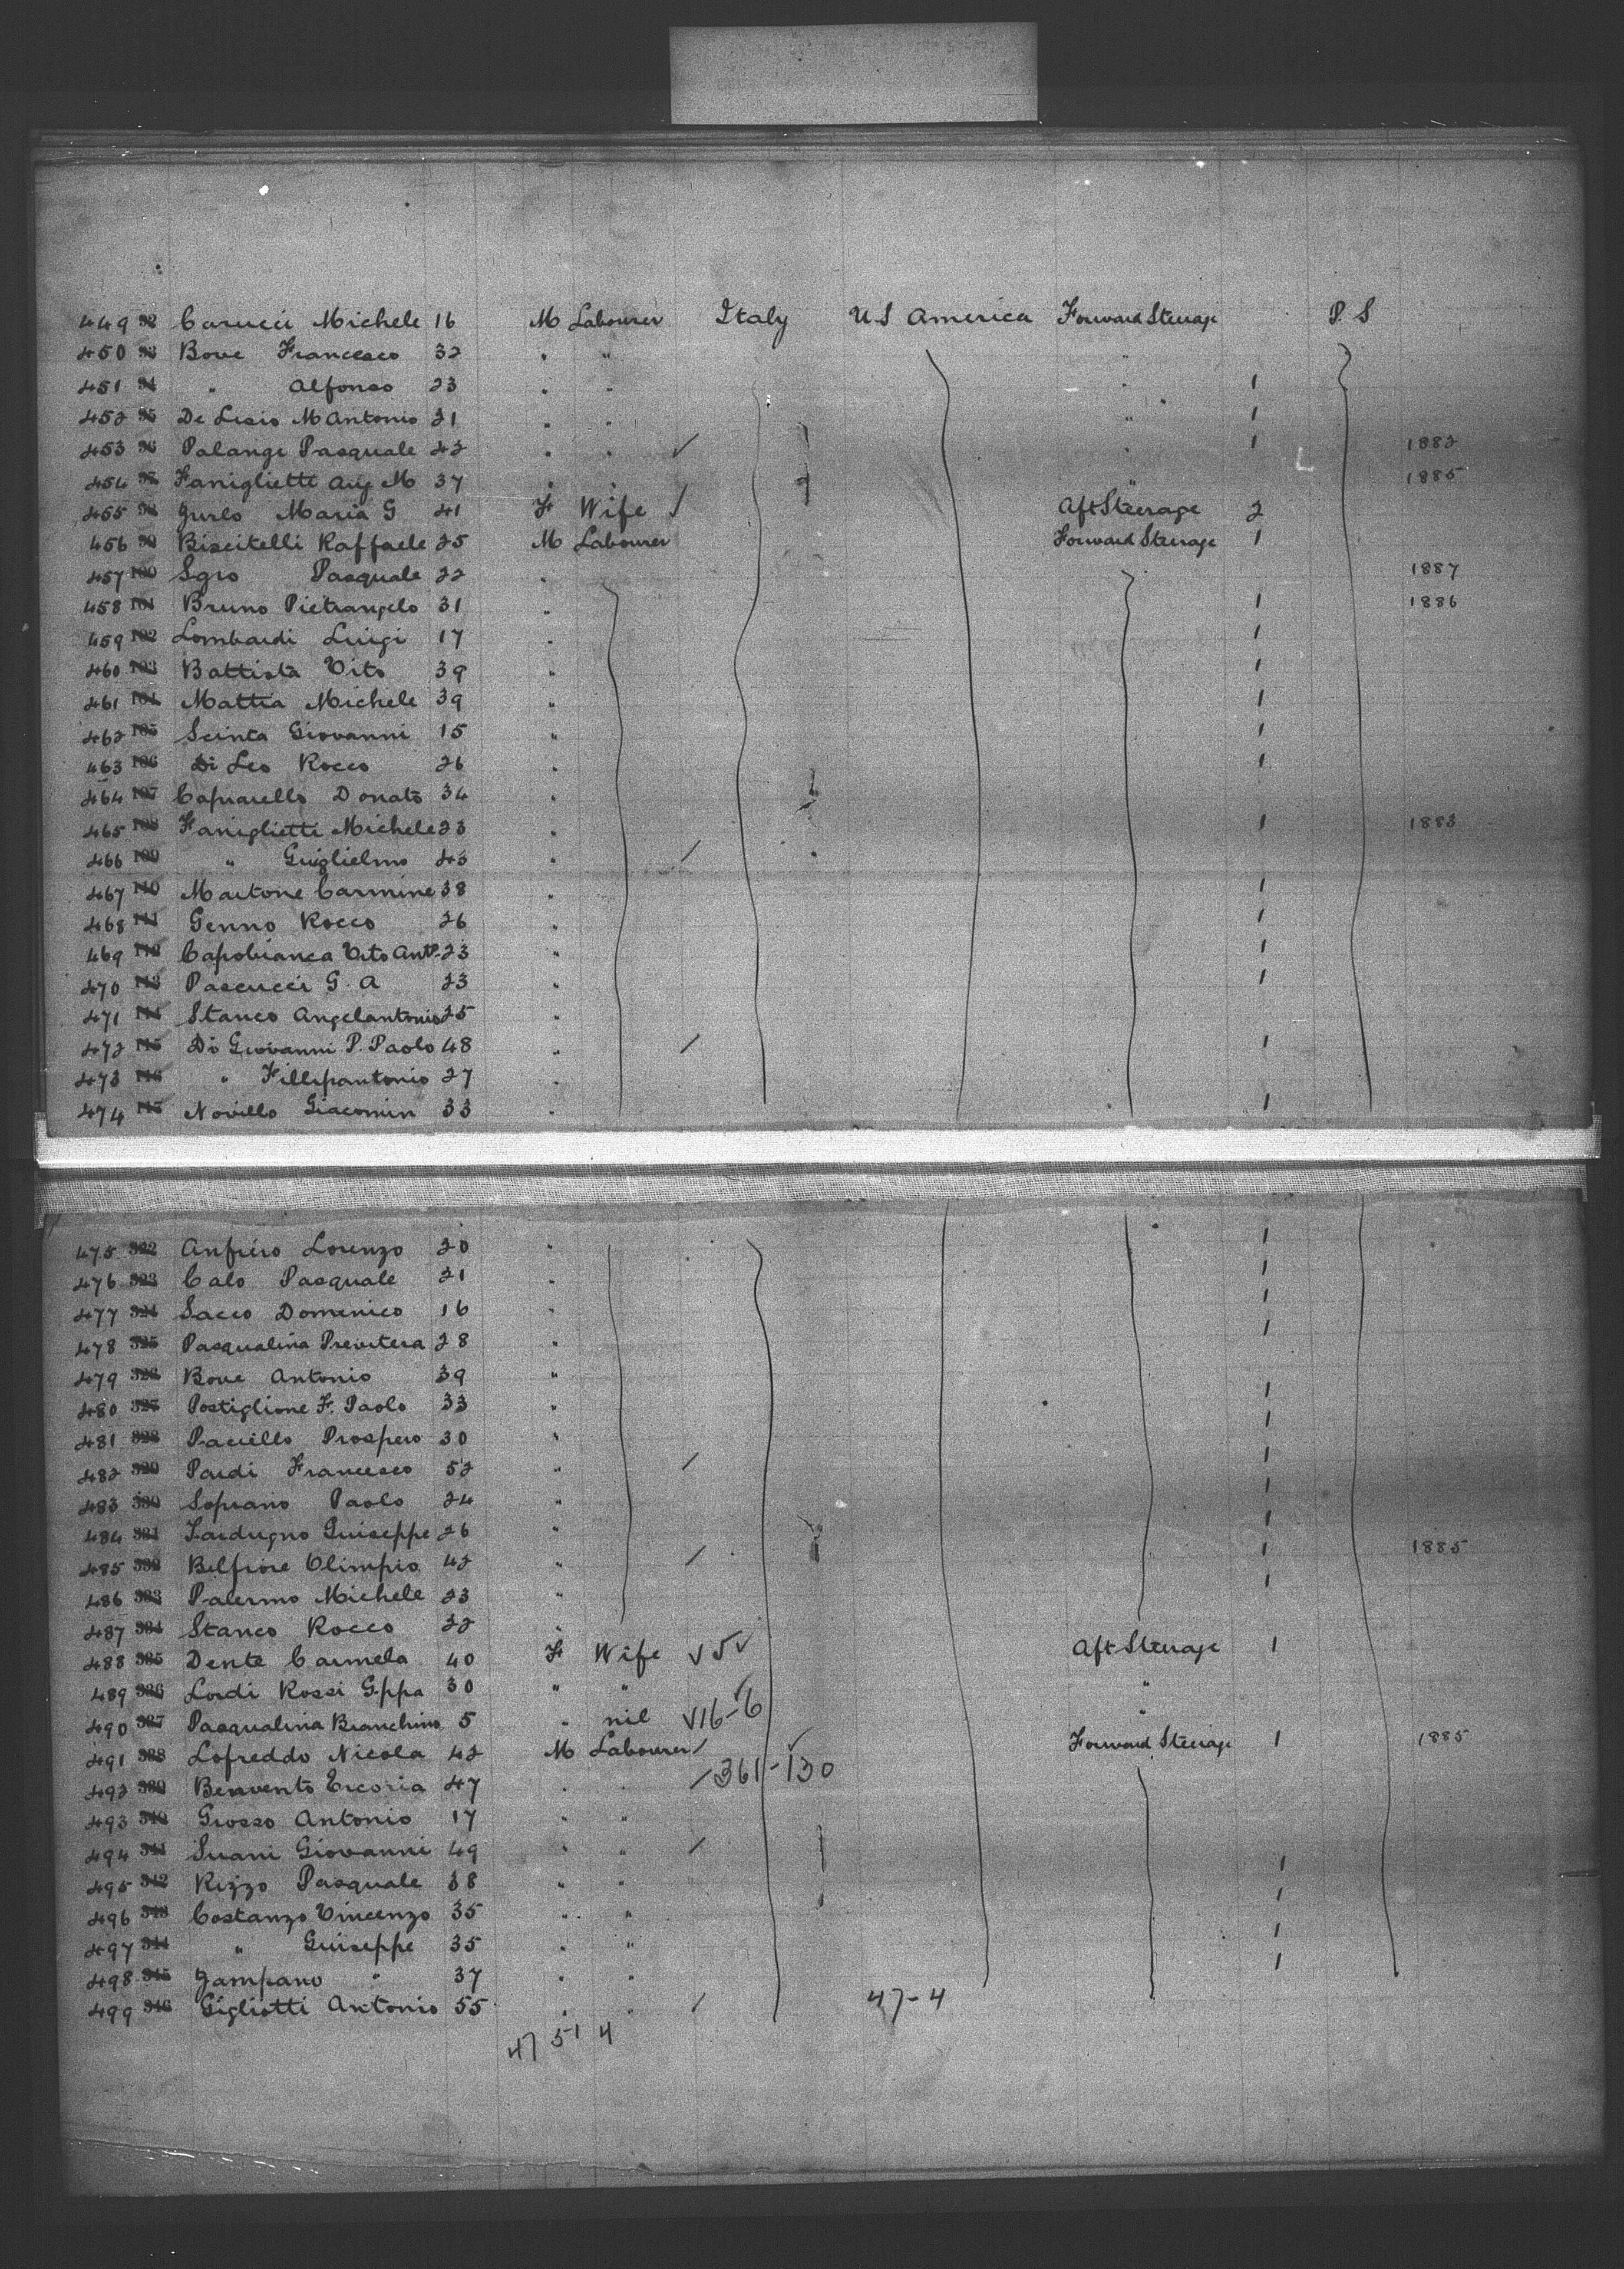 449 92 Carucci Michele 16 M Labourer Italy U S America Forward Steerage P. S
450 93 Bove Francesco 32 " " "
451 94 " Alfonso 23 " " " 1
452 95 De Lisio M Antonio 21 " " " 1
453 96 Palange Pasquale 42 " " " 1 1882
454 97 Faniglietti Aug M 37 " " " 1885
455 98 Gurlo Maria G 41 F Wife Aft Steerage 2
456 99 Biscitelli Raffaele 25 M Labourer Forward Steerage 1
457 100 Sgro Pasquale 22 " 1887
458 101 Bruno Pietrangelo 31 " 1 1886
459 102 Lombardi Luigi 17 " 1
460 103 Battista Vito 39 " 1
461 104 Mattia Michele 39 " 1
462 105 Scinta Giovanni 15 " 1
463 106 Di Leo Rocco 26 " 1
464 107 Caprarello Donato 34 "
465 108 Faniglietti Michele 23 " 1 1883
466 109 " Guiglielmo 43 "
467 110 Martone Carmine 38 " 1
468 111 Genno Rocco 26 " 1
469 112 Capobianca Vito Ant. 23 " 1
470 113 Pascucci G. A 23 " 1
471 114 Stanco Angelantonio 25 "
472 115 Di Giovanni P. Paolo 48 " 1
473 116 " Fillipantonio 27 "
474 Novillo Giacomin 33 " 1
475 322 Anfiero Lorenzo 20 " 1
476 323 Calo Pasquale 21 " 1
477 324 Sacco Domenico 16 " 1
478 325 Pasqualina Previtera 28 " 1
479 326 Bove Antonio 39 "
480 327 Postiglione F. Paolo 33 " 1
481 328 Pacillo Prospero 30 " 1
482 329 Pardi Francesco 52 " 1
483 330 Soprano Paolo 24 " 1
484 331 Guiseppe 26 " 1
485 332 Belfiore Olimpio 42 " 1 1885
486 333 Palermo Michele 23 " 1
487 334 Stanco Rocco 22 "
488 335 Dente Carmela 40 F Wife 5 Aft Steerage 1
489 336 Lordi Rossi G.ppa 30 " " "
490 337 Pasqualina Branchino 5 " nil 16-6 "
491 338 Lofreddo Nicola 42 M Labourer Forward Steerage 1 1885
492 339 Benvento 47 " " 361-130
493 340 Grosso Antonio 17 " "
494 341 Giovanni 49 " " 1
495 342 Rizzo Pasquale 38 " " 1
496 343 Costanzo Vincenzo 35 " " 1
497 344 " Guiseppe 35 " " 1
498 345 Gampano " 37 " "
499 346 Gigliotti Antonio 55 " " 47-4
47 51 4